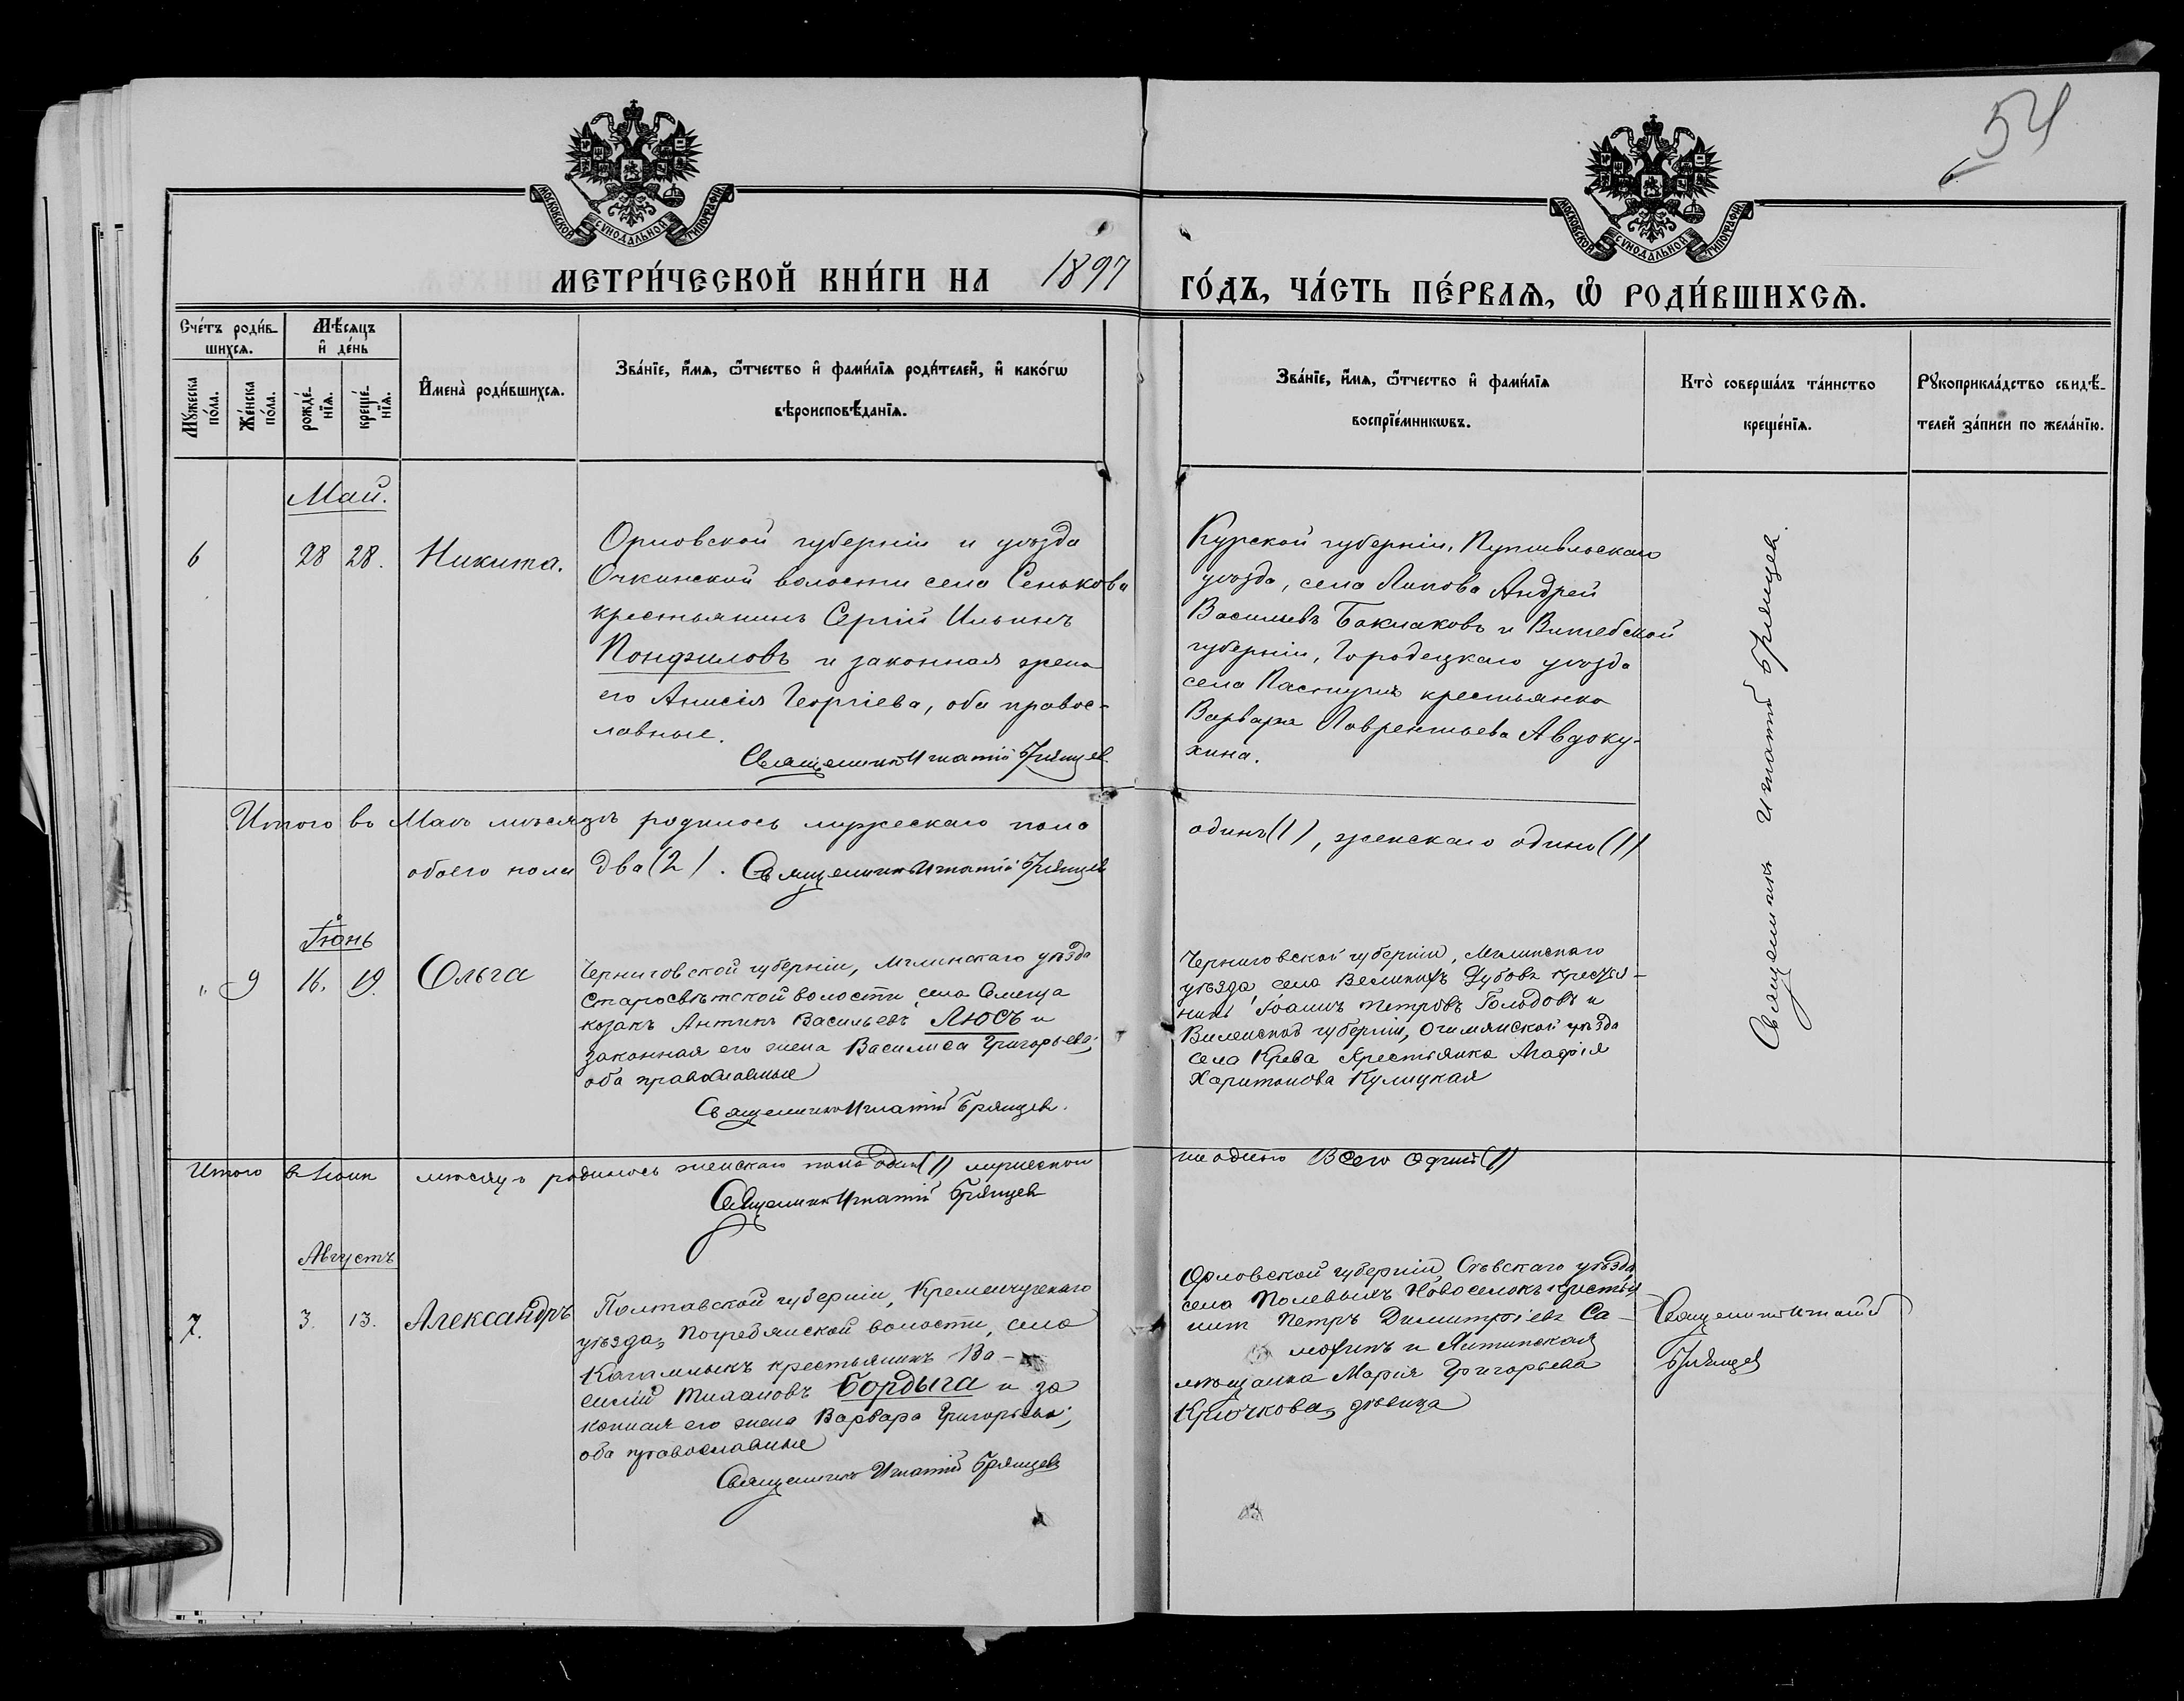 54
МОСКОВСКОЙ СѴНОДАЛЬНОЙ ТИПОГРАФІИ
МОСКОВСКОЙ СѴНОДАЛЬНОЙ ТИПОГРАФІИ
МЕТРИ́ЧЕСКОЙ КНИ́ГИ НА 1897
ГО́ДЪ, ЧА́СТЬ ПЕ́РВАѦ, Ѡ҆ РОДИ́ВШИХСѦ.
Сче́тъ роди́в-
шихсѧ.
Мꙋ́жеска
по́ла.
Же́нска
по́ла.
Мѣ́сѧцъ
и҆ де́нь
рожде́-
нїѧ.
креще́-
нїѧ.
И҆мена̀ роди́вшихсѧ.
Зва́нїе, и҆́мѧ, ѻ҆́тчество и҆ фами́лїѧ роди́телей, и҆ како́гѡ
вѣроисповѣ́данїѧ.
Зва́нїе, и҆́мѧ, ѻ҆́тчество и҆ фами́лїѧ
воспрїе́мникѡвъ.
Кто̀ соверша́лъ та́инство
креще́нїѧ.
Рꙋкоприкла́дство свидѣ́-
телей за́писи по жела́нїю.
Май.
6 28 28. Никита.
Орловской губерніи и уѣзда
Очкинской волости села Сенькова
крестьянинъ Сергій Ильинъ
Понфиловъ и законная жена
его Анисія Георгіева, оба правос-
лавные.
Священникъ Игнатій Брянцев
Курской губерніи, Путивльскаго
уѣзда, села Линова Андрей
Васильевъ Баклаковъ и Витебской
губерніи, Городецкаго уѣзда
села крестьянка
Варвара Лаврентьева Авдоку-
хина.
Священник Игнатій Брянцев
Итого въ Маѣ мѣсяцѣ родилось мужескаго пола
одинъ (1), женскаго одинъ (1)
обоего пола два (2). Священникъ Игнатій Брянцев
Іюнь
" 9 16. 19. Ольга
Черниговской губерніи, Мглинскаго уѣзда
Старосвѣтской волости села
козакъ Антипъ Васильевъ Люсъ и
законная его жена Василиса Григорьева;
оба православные
Священникъ Игнатій Брянцев.
Черниговской губерніи, Мглинскаго
уѣзда, села Великихъ Дубовъ крестья-
нинъ Іоаннъ Петровъ Голодовъ и
Виленской губерніи, Ошмянской уѣзда
села Крева крестьянка Агафія
Харитонова Кулицкая
Итого в Іюнѣ мѣсяцѣ родилось женскаго пола один (1) мужескаго
ни одного Всего один (1)
Священник Игнатій Брянцев
Августъ
7. 3. 13. Александръ
Полтавской губерніи, Кременчугскаго
уѣзда, Погребянской волости, села
Кагамлыкъ крестьянинъ Ва-
силій Бордыга и за
конная его жена Варвара Григорьева;
оба православные
Священникъ Игнатій Брянцевъ
Орловской губерніи Сѣвскаго уѣзда,
села Полевыхъ Новоселокъ крестья
нинъ Петръ Димитріевъ Са-
мохинъ и Ялтинская
мѣщанка Марія Григорьева
Крючкова, дѣвица
Священникъ Игнатій
Брянцев